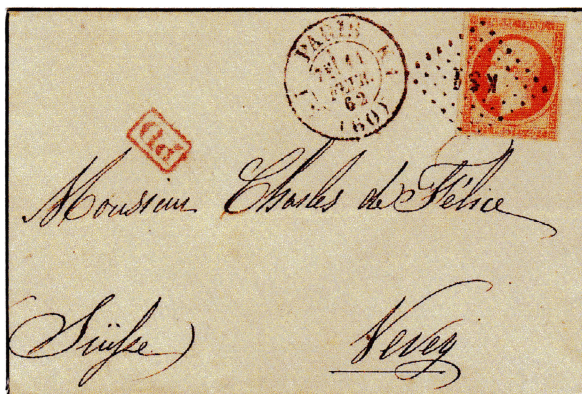 PARIS K.1
11
FEVR.
62
(60)
KS1
Chef
Monsieur Charles de Félice
(Süisse) Vevey